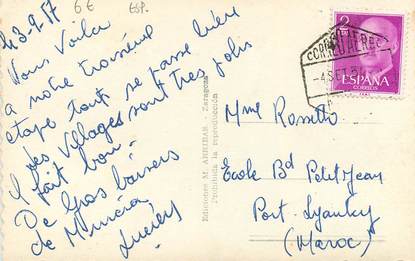 4 3.9.57
6€
ESP.
Nous Voila
a notre troisième
étape tout se passe bien
les Villages sont tres jolis
Il fait bon.
De Gros baisers
de Murcia
Ediciones M. ARRIBAS - Zaragoza
Prohibida la reproducción
2 PTAS
CORREO AEREO
-4 SET.57
ESPAÑA
CORREOS
Mme Rossetto
Ecole Bd Petitjean
Port-Lyautey
(Maroc)